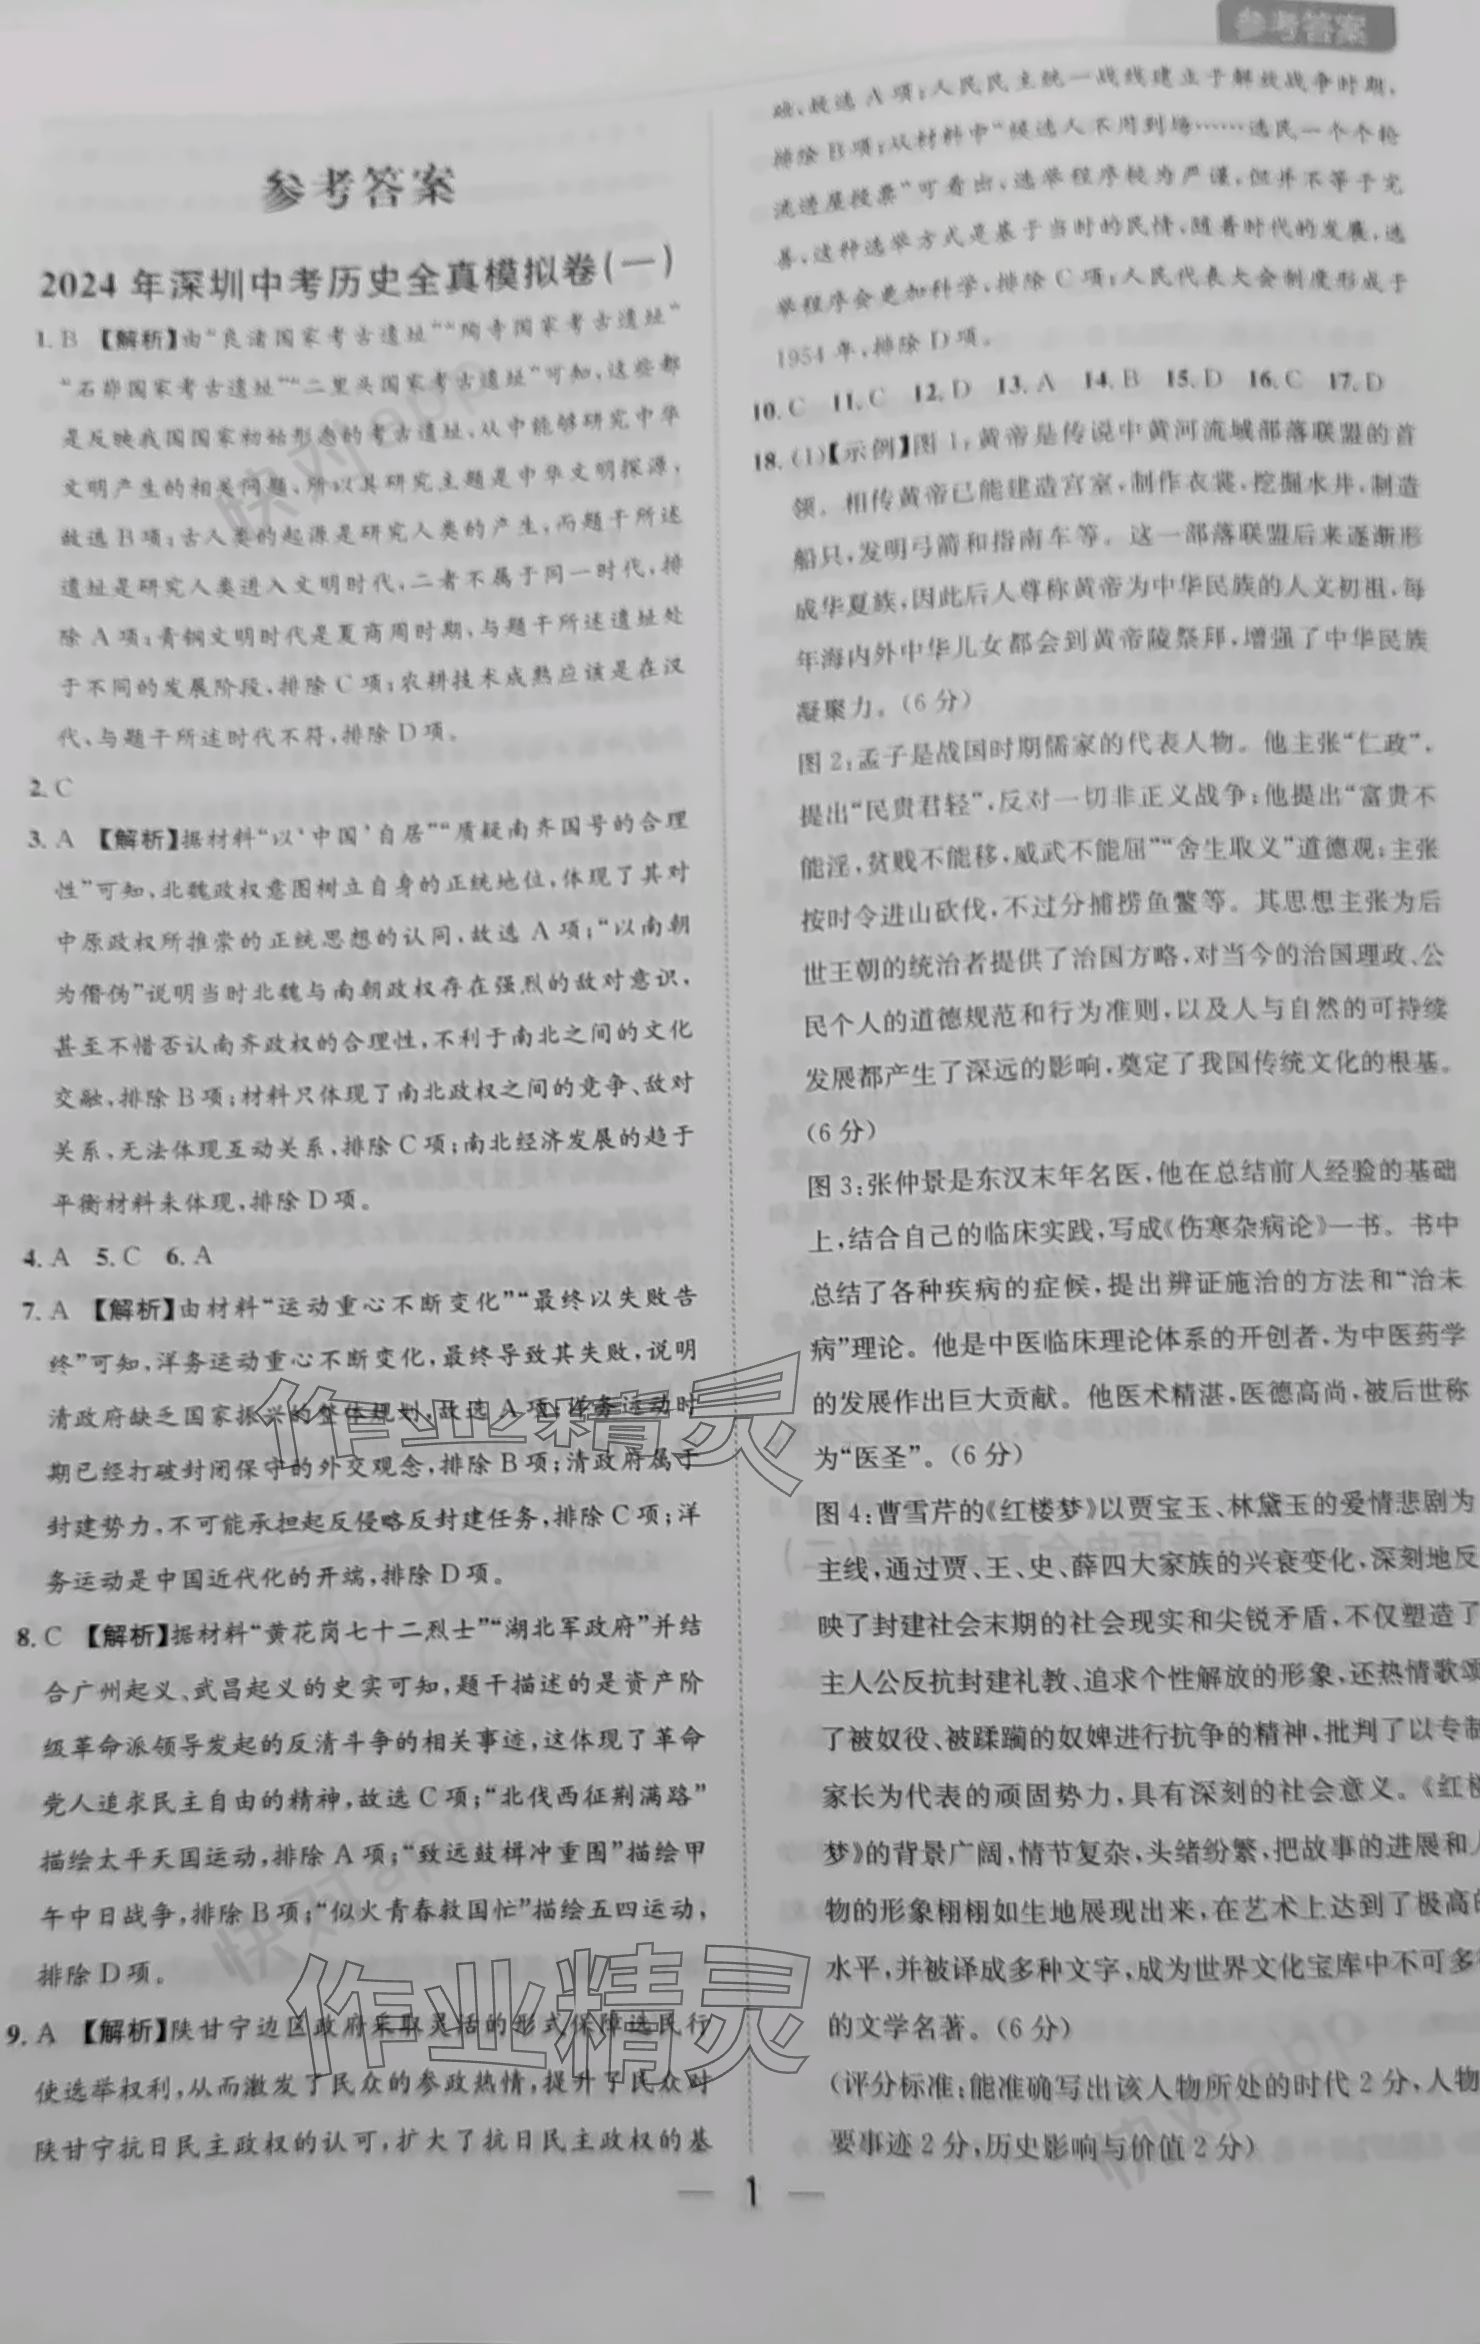 参考答案
参考答案
2024年深圳中考历史全真模拟卷(一)
1. B 【解析】由“良渚国家考古遗址”“陶寺国家考古遗址”
“石峁国家考古遗址”“二里头国家考古遗址”可知,这些都
是反映我国国家初始形态的考古遗址,从中能够研究中华
文明产生的相关问题、所以其研究主题是中华文明探源,
故选B项;古人类的起源是研究人类的产生,而题干所述
遗址是研究人类进入文明时代,二者不属于同一时代,排
除A项;青铜文明时代是夏商周时期,与题干所述遗址处
于不同的发展阶段,排除C项;农耕技术成熟应该是在汉
代、与题干所述时代不符,排除D项。
2. C
3. A 【解析】据材料“以‘中国’自居”“质疑南齐国号的合理
性”可知,北魏政权意图树立自身的正统地位,体现了其对
中原政权所推崇的正统思想的认同,故选A项;“以南朝
为僭伪”说明当时北魏与南朝政权存在强烈的敌对意识,
甚至不惜否认南齐政权的合理性,不利于南北之间的文化
交融,排除B项;材料只体现了南北政权之间的竞争、敌对
关系,无法体现互动关系,排除C项;南北经济发展的趋于
平衡材料未体现,排除D项。
4. A 5. C 6. A
7. A 【解析】由材料“运动重心不断变化”“最终以失败告
终”可知,洋务运动重心不断变化,最终导致其失败,说明
清政府缺乏国家振兴的整体规划,故选A项;洋务运动时
期已经打破封闭保守的外交观念,排除B项;清政府属于
封建势力,不可能承担起反侵略反封建任务,排除C项;洋
务运动是中国近代化的开端,排除D项。
8. C 【解析】据材料“黄花岗七十二烈士”“湖北军政府”并结
合广州起义、武昌起义的史实可知,题干描述的是资产阶
级革命派领导发起的反清斗争的相关事迹,这体现了革命
党人追求民主自由的精神,故选C项;“北伐西征荆满路”
描绘太平天国运动,排除A项;“致远鼓楫冲重围”描绘甲
午中日战争,排除B项;“似火青春救国忙”描绘五四运动,
排除D项。
9. A 【解析】陕甘宁边区政府采取灵活的形式保障选民行
使选举权利,从而激发了民众的参政热情,提升了民众对
陕甘宁抗日民主政权的认可,扩大了抗日民主政权的基
础,故选A项;人民民主统一战线建立于解放战争时期,
排除B项;从材料中“候选人不用到场……选民一个个轮
流进屋投票”可看出,选举程序较为严谨,但并不等于完
善,这种选举方式是基于当时的民情,随着时代的发展,选
举程序会更加科学,排除C项;人民代表大会制度形成于
1954年,排除D项。
10. C 11. C 12. D 13. A 14. B 15. D 16. C 17. D
18. (1)【示例】图1:黄帝是传说中黄河流域部落联盟的首
领。相传黄帝已能建造宫室,制作衣裳,挖掘水井,制造
船只,发明弓箭和指南车等。这一部落联盟后来逐渐形
成华夏族,因此后人尊称黄帝为中华民族的人文初祖,每
年海内外中华儿女都会到黄帝陵祭拜,增强了中华民族
凝聚力。(6分)
图2:孟子是战国时期儒家的代表人物。他主张“仁政”,
提出“民贵君轻”,反对一切非正义战争;他提出“富贵不
能淫,贫贱不能移,威武不能屈”“舍生取义”道德观;主张
按时令进山砍伐,不过分捕捞鱼鳖等。其思想主张为后
世王朝的统治者提供了治国方略,对当今的治国理政、公
民个人的道德规范和行为准则,以及人与自然的可持续
发展都产生了深远的影响,奠定了我国传统文化的根基。
(6分)
图3:张仲景是东汉末年名医,他在总结前人经验的基础
上,结合自己的临床实践,写成《伤寒杂病论》一书。书中
总结了各种疾病的症候,提出辨证施治的方法和“治未
病”理论。他是中医临床理论体系的开创者,为中医药学
的发展作出巨大贡献。他医术精湛,医德高尚,被后世称
为“医圣”。(6分)
图4:曹雪芹的《红楼梦》以贾宝玉、林黛玉的爱情悲剧为
主线,通过贾、王、史、薛四大家族的兴衰变化,深刻地反
映了封建社会末期的社会现实和尖锐矛盾,不仅塑造了
主人公反抗封建礼教、追求个性解放的形象,还热情歌颂
了被奴役、被蹂躏的奴婢进行抗争的精神,批判了以专制
家长为代表的顽固势力,具有深刻的社会意义。《红楼
梦》的背景广阔,情节复杂,头绪纷繁,把故事的进展和人
物的形象栩栩如生地展现出来,在艺术上达到了极高的
水平,并被译成多种文字,成为世界文化宝库中不可多得
的文学名著。(6分)
(评分标准:能准确写出该人物所处的时代2分,人物
要事迹2分,历史影响与价值2分)
1
快对app
作业精灵
快对app
作业精灵
快对app